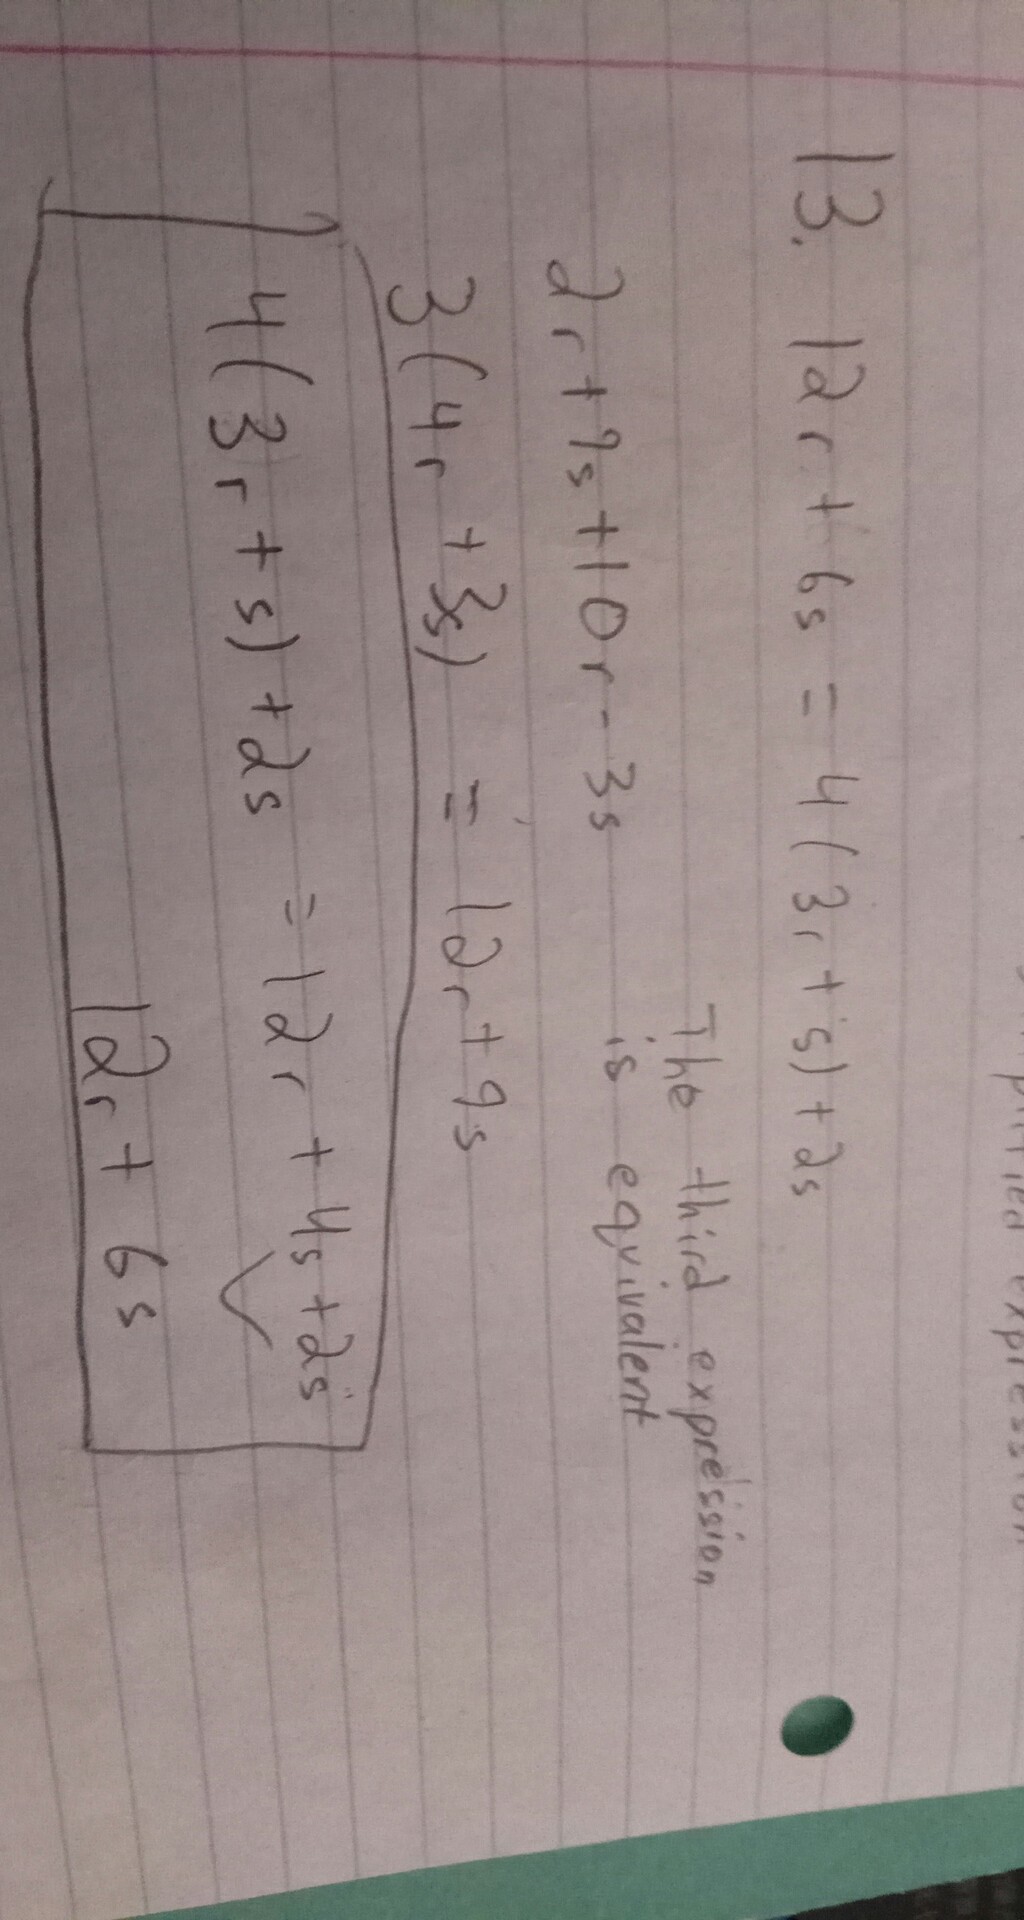 simplified expression
13. 12r + 6s = 4(3r + s) + 2s
The third expression
is equivalent
2r + 9s + 10r - 3s
3(4r + 3s) = 12r + 9s
4(3r + s) + 2s = 12r + 4s + 2s
12r + 6s